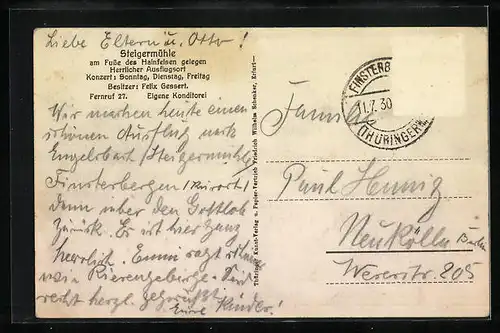 Liebe Eltern u. Otto!
Steigermühle
am Fuße des Hainfelsen gelegen
Herrlicher Ausflugsort
Konzert: Sonntag, Dienstag, Freitag
Besitzer: Felix Gessert.
Fernruf 27. Eigene Konditorei
Wir machen heute einen
schönen Ausflug nach
Engelsbach, Steigermühle,
Finsterbergen (Kurort)
dann über den Gottlob
zurück. Es ist hier ganz
herrlich.
wie Riesengebirge. Seid
recht herzl. gegrüßt
Eure Kinder!
Thüringer Kunst-Verlag u. Papier-Vertrieb Friedrich Wilhelm Schenker, Erfurt
FINSTERB
11.7.30
(THÜRINGERW.
Familie
Paul Hennig
Neukölln Berlin
Weserstr. 205